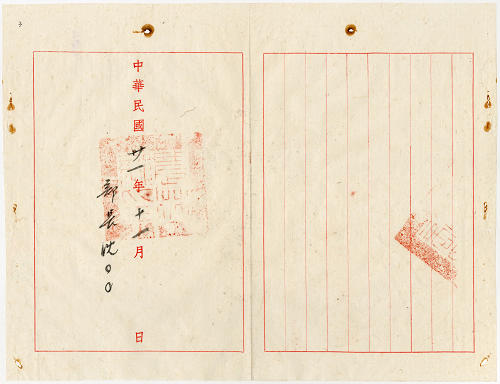 中華民國廿一年十一月　日
部長沈○○